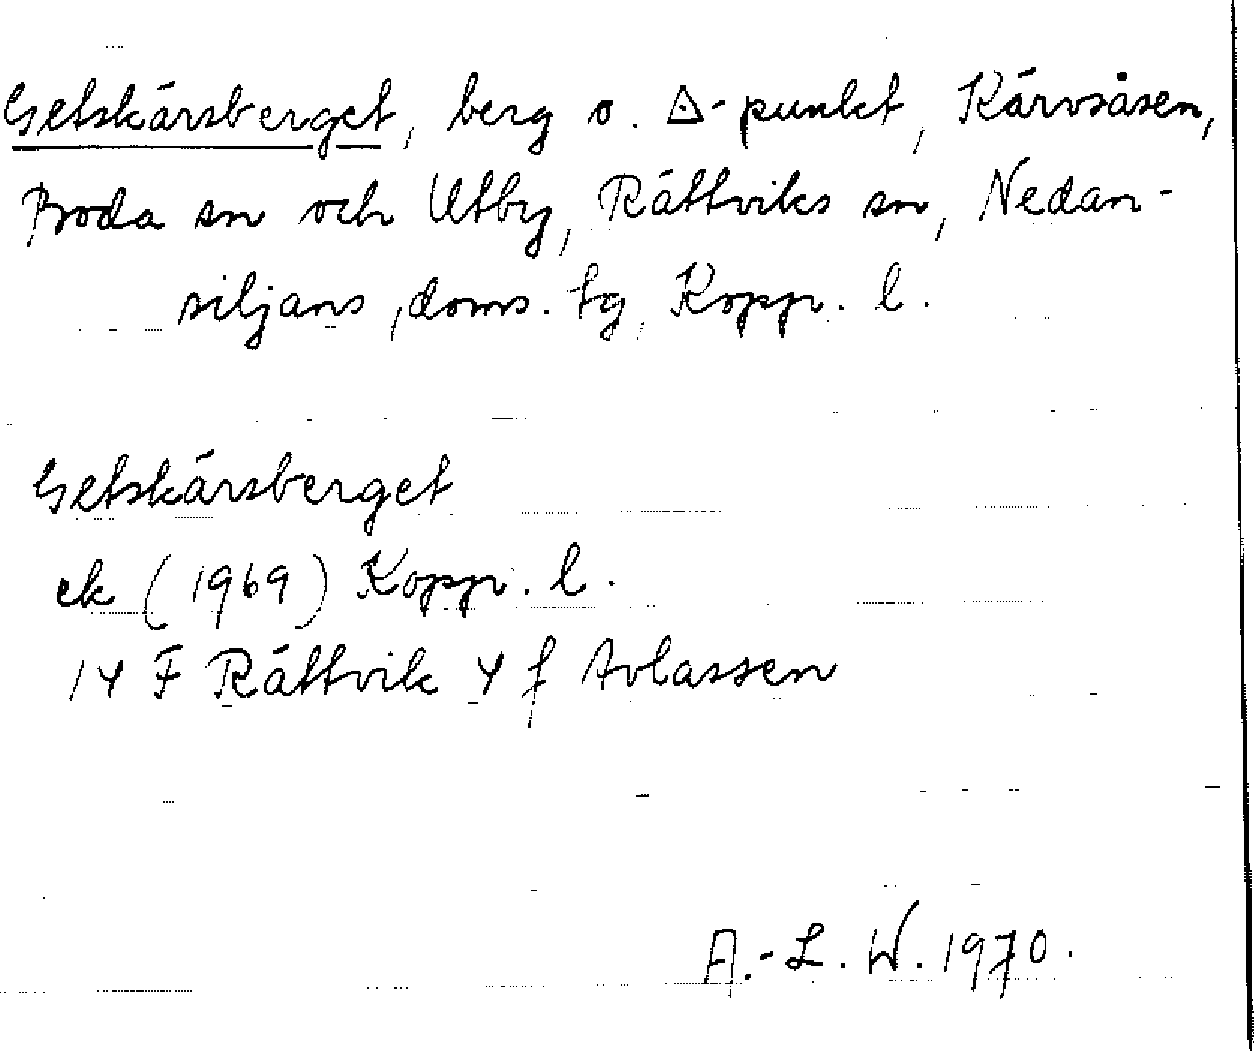 Getskärsberget, berg o. ◬-punkt, Kärvsåsen,
Boda sn och Utby, Rättviks sn, Nedan-
siljans, doms. tg, Kopp. l.
Getskärsberget
ek (1969) Kopp. l.
14 F Rättvik 4 f Avlassen
A.-L. W. 1970.